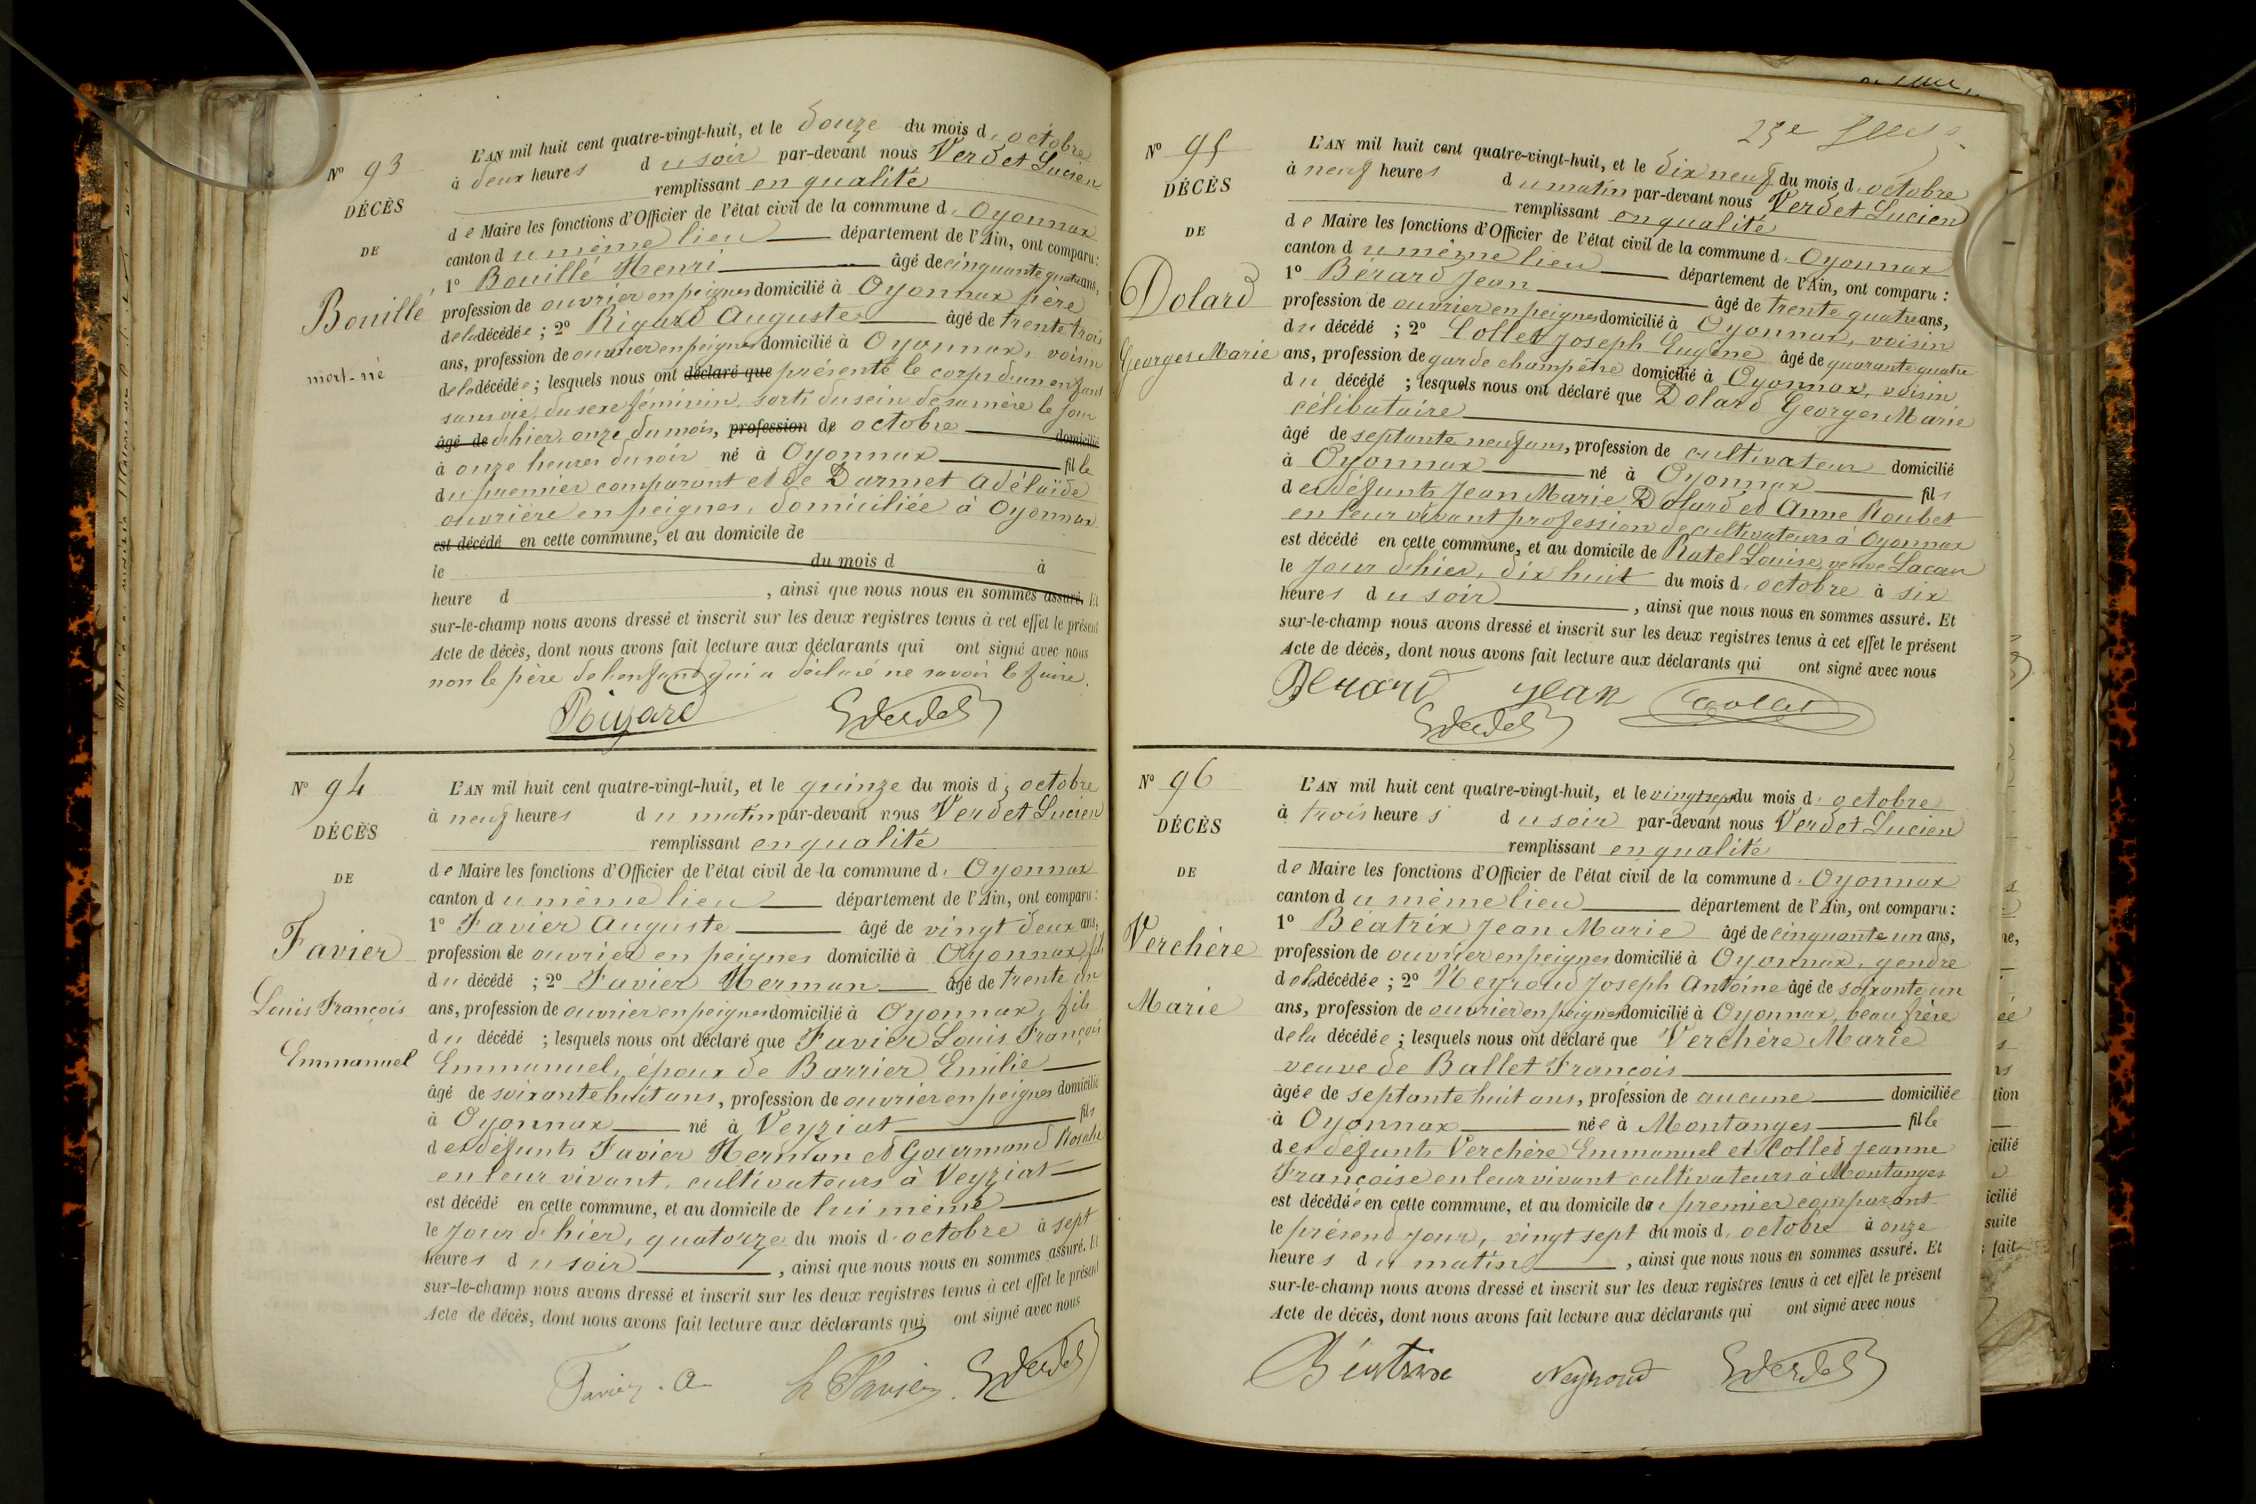 N° 93
DÉCÈS
DE
Bouillé
mort-né
L'AN mil huit cent quatre-vingt-huit, et le douze du mois d'octobre
à deux heures du soir par-devant nous Verdet Lucien
remplissant en qualité
de Maire les fonctions d'Officier de l'état civil de la commune d'Oyonnax
canton du même lieu département de l'Ain, ont comparu :
1° Bouillé Henri âgé de cinquante quatre ans,
profession de ouvrier en peignes domicilié à Oyonnax père
de la décédée ; 2° Rigard Auguste âgé de trente trois
ans, profession de ouvrier en peignes domicilié à Oyonnax, voisin
de la décédée ; lesquels nous ont déclaré que présenté le corps d'un enfant
sans vie, du sexe féminin, sorti du sein de sa mère le jour
âgé de d'hier, onze du mois, profession de octobre domicilié
à onze heures du soir né à Oyonnax fille
du premier comparant et de Darmet Adélaïde
ouvrière en peignes, domiciliée à Oyonnax
est décédé en cette commune, et au domicile de
le du mois d à
heure d , ainsi que nous nous en sommes assuré. Et
sur-le-champ nous avons dressé et inscrit sur les deux registres tenus à cet effet le présent
Acte de décès, dont nous avons fait lecture aux déclarants qui ont signé avec nous
non le père de l'enfant qui a déclaré ne savoir le faire.
LVerdet
N° 94
DÉCÈS
DE
Favier
Louis François
Emmanuel
L'AN mil huit cent quatre-vingt-huit, et le quinze du mois d'octobre
à neuf heures du matin par-devant nous Verdet Lucien
remplissant en qualité
de Maire les fonctions d'Officier de l'état civil de la commune d'Oyonnax
canton du même lieu département de l'Ain, ont comparu :
1° Favier Auguste âgé de vingt deux ans,
profession de ouvrier en peignes domicilié à Oyonnax, fils
du décédé ; 2° Favier Herman âgé de trente un
ans, profession de ouvrier en peignes domicilié à Oyonnax, fils
du décédé ; lesquels nous ont déclaré que Favier Louis François
Emmanuel, époux de Barrier Emilie
âgé de soixante huit ans, profession de ouvrier en peignes domicilié
à Oyonnax né à Veyziat fils
des défunts Favier Herman et Gourmand Rosalie
en leur vivant, cultivateurs à Veyziat
est décédé en cette commune, et au domicile de lui même
le jour d'hier, quatorze du mois d'octobre à sept
heures du soir , ainsi que nous nous en sommes assuré. Et
sur-le-champ nous avons dressé et inscrit sur les deux registres tenus à cet effet le présent
Acte de décès, dont nous avons fait lecture aux déclarants qui ont signé avec nous
Favier . A h Favier LVerdet
25e
N° 95
DÉCÈS
DE
Dolard
Georges Marie
L'AN mil huit cent quatre-vingt-huit, et le dix neuf du mois d'octobre
à neuf heures du matin par-devant nous Verdet Lucien
remplissant en qualité
de Maire les fonctions d'Officier de l'état civil de la commune d'Oyonnax
canton du même lieu département de l'Ain, ont comparu :
1° Bérard Jean âgé de trente quatre ans,
profession de ouvrier en peignes domicilié à Oyonnax, voisin
du décédé ; 2° Collet Joseph Eugène âgé de quarante quatre
ans, profession de garde champêtre domicilié à Oyonnax, voisin
du décédé ; lesquels nous ont déclaré que Dolard Georges Marie
célibataire
âgé de septante neuf ans, profession de cultivateur domicilié
à Oyonnax né à Oyonnax fils
des défunts Jean Marie Dolard et Anne Roubet
en leur vivant profession de cultivateurs à Oyonnax
est décédé en cette commune, et au domicile de Ratel Louise, veuve Lacan
le jour d'hier, dix huit du mois d'octobre à six
heures du soir , ainsi que nous nous en sommes assuré. Et
sur-le-champ nous avons dressé et inscrit sur les deux registres tenus à cet effet le présent
Acte de décès, dont nous avons fait lecture aux déclarants qui ont signé avec nous
Berard Jean Collet
LVerdet
N° 96
DÉCÈS
DE
Verchère
Marie
L'AN mil huit cent quatre-vingt-huit, et le vingt sept du mois d'octobre
à trois heures du soir par-devant nous Verdet Lucien
remplissant en qualité
de Maire les fonctions d'Officier de l'état civil de la commune d'Oyonnax
canton du même lieu département de l'Ain, ont comparu :
1° Béatrix Jean Marie âgé de cinquante un ans,
profession de ouvrier en peignes domicilié à Oyonnax, gendre
de la décédée ; 2° Neyroud Joseph Antoine âgé de soixante un
ans, profession de ouvrier en peignes domicilié à Oyonnax, beau frère
de la décédée ; lesquels nous ont déclaré que Verchère Marie
veuve de Ballet François
âgée de septante huit ans, profession de aucune domiciliée
à Oyonnax née à Montanges fille
des défunts Verchère Emmanuel et Collet Jeanne
Françoise en leur vivant cultivateurs à Montanges
est décédée en cette commune, et au domicile du premier comparant
le présent jour, vingt sept du mois d'octobre à onze
heures du matin , ainsi que nous nous en sommes assuré. Et
sur-le-champ nous avons dressé et inscrit sur les deux registres tenus à cet effet le présent
Acte de décès, dont nous avons fait lecture aux déclarants qui ont signé avec nous
Béatrix Neyroud LVerdet